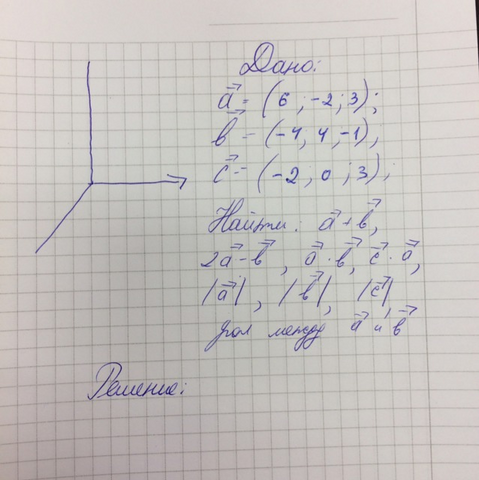 Дано:
a⃗ = (6 ; -2 ; 3);
в⃗ = (-4, 4, -1),
c⃗ = (-2 ; 0 ; 3);
Найти: a⃗ + в⃗,
2a⃗ - в⃗, a⃗ · в⃗, c⃗ · a⃗,
|a⃗|, |в⃗|, |c⃗|,
угол между a⃗ и в⃗
Решение: